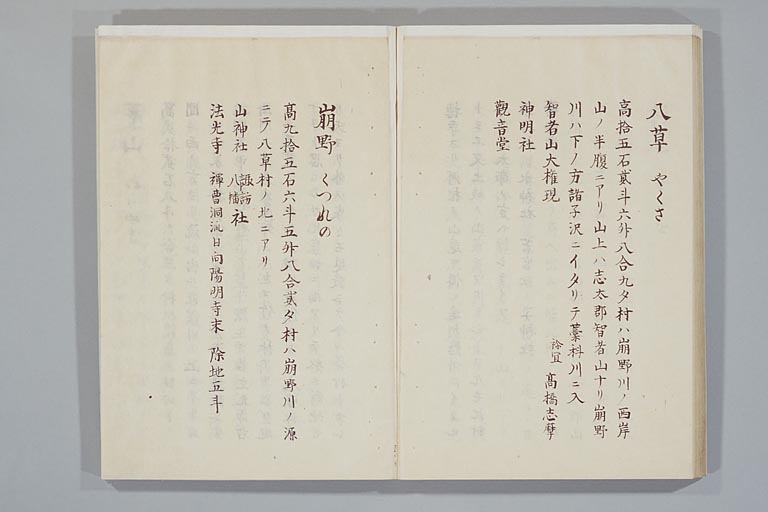 八草 やくさ
高拾五石貳斗六舛八合九夕村ハ崩野川ノ西岸
山ノ半腹ニアリ山上ハ志太郡智者山ナリ崩野
川ハ下ノ方諸子沢ニイタリテ藁科川ニ入
智者山大権現 祢宜 高橋志摩
神明社
観音堂
崩野 くつれの
高九拾五石六斗五舛八合貳夕村ハ崩野川ノ源
ニテ八草村ノ北ニアリ
山神社 諏訪 八幡 社
法光寺 禅曹洞派日向陽明寺末 除地五斗